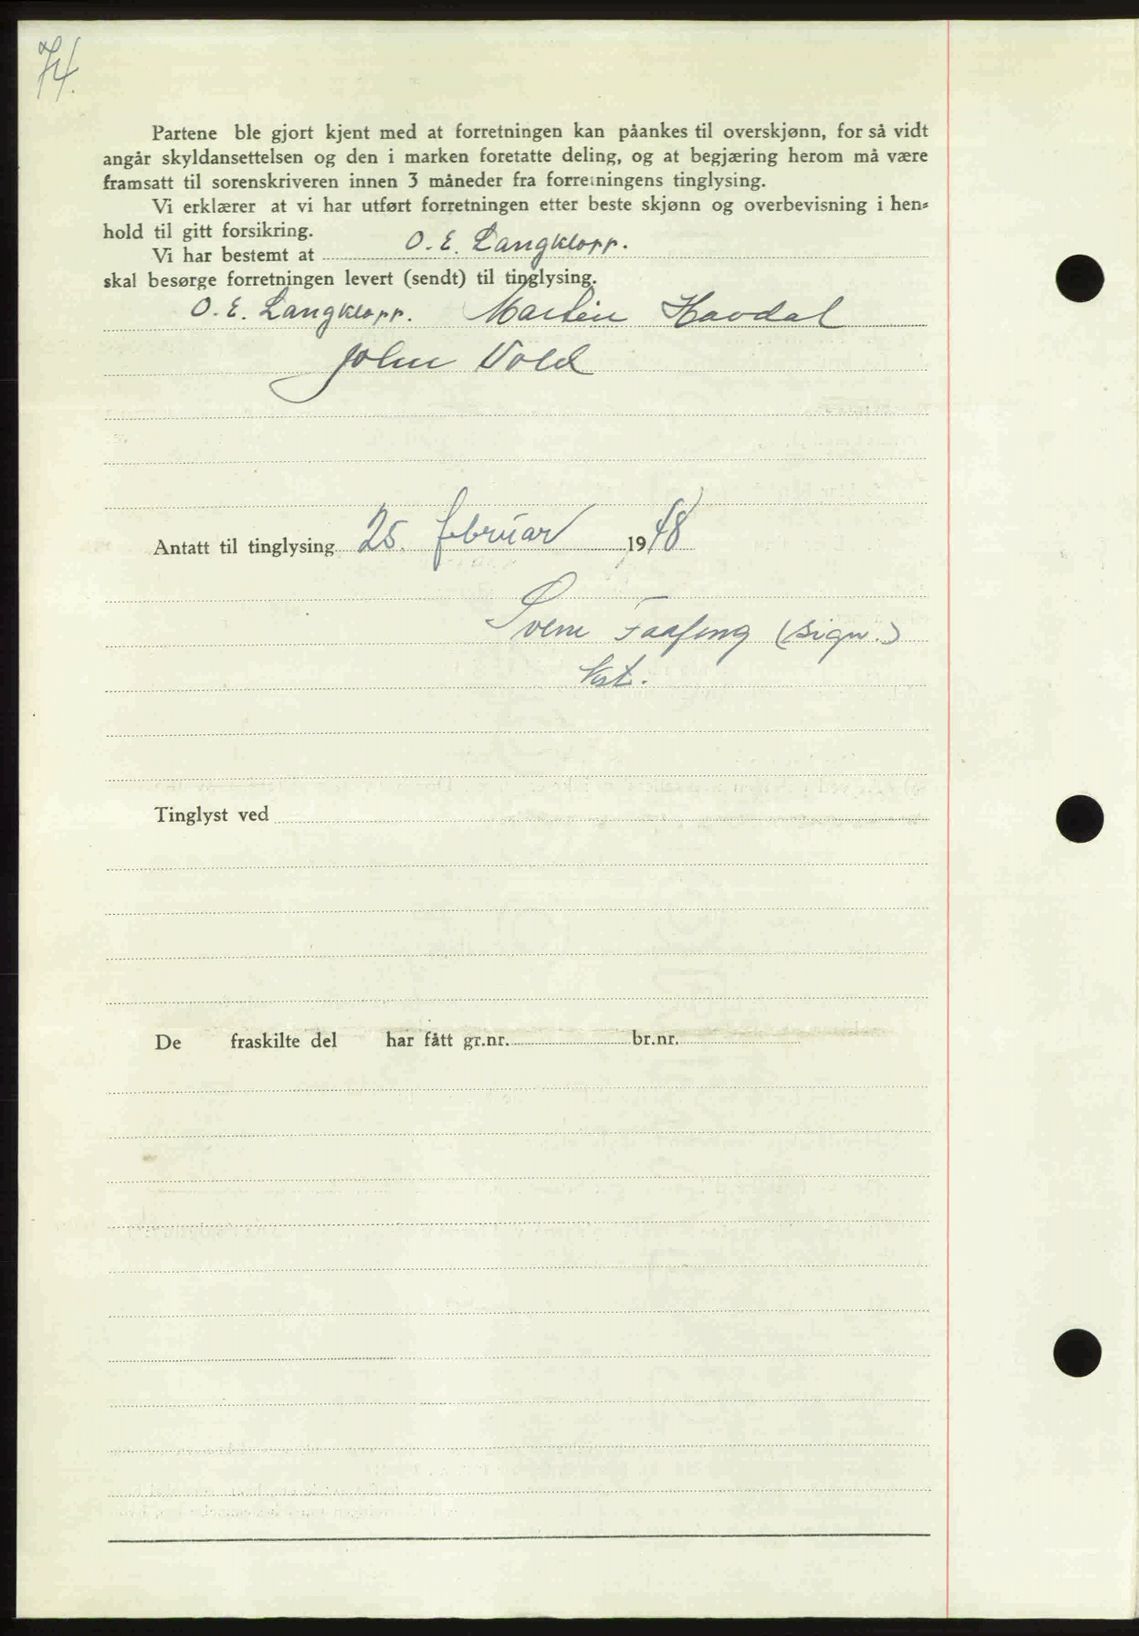 74.
Partene ble gjort kjent med at forretningen kan påankes til overskjønn, for så vidt
angår skyldansettelsen og den i marken foretatte deling, og at begjæring herom må være
framsatt til sorenskriveren innen 3 måneder fra forretningens tinglysing.
Vi erklærer at vi har utført forretningen etter beste skjønn og overbevisning i hen-
hold til gitt forsikring.
Vi har bestemt at O. E. Langklopp.
skal besørge forretningen levert (sendt) til tinglysing.
O. E. Langklopp. Martin Havdal
John Vold
Antatt til tinglysing 25. februar 1948
(sign.)
Tinglyst ved
De fraskilte del har fått gr.nr. br.nr.